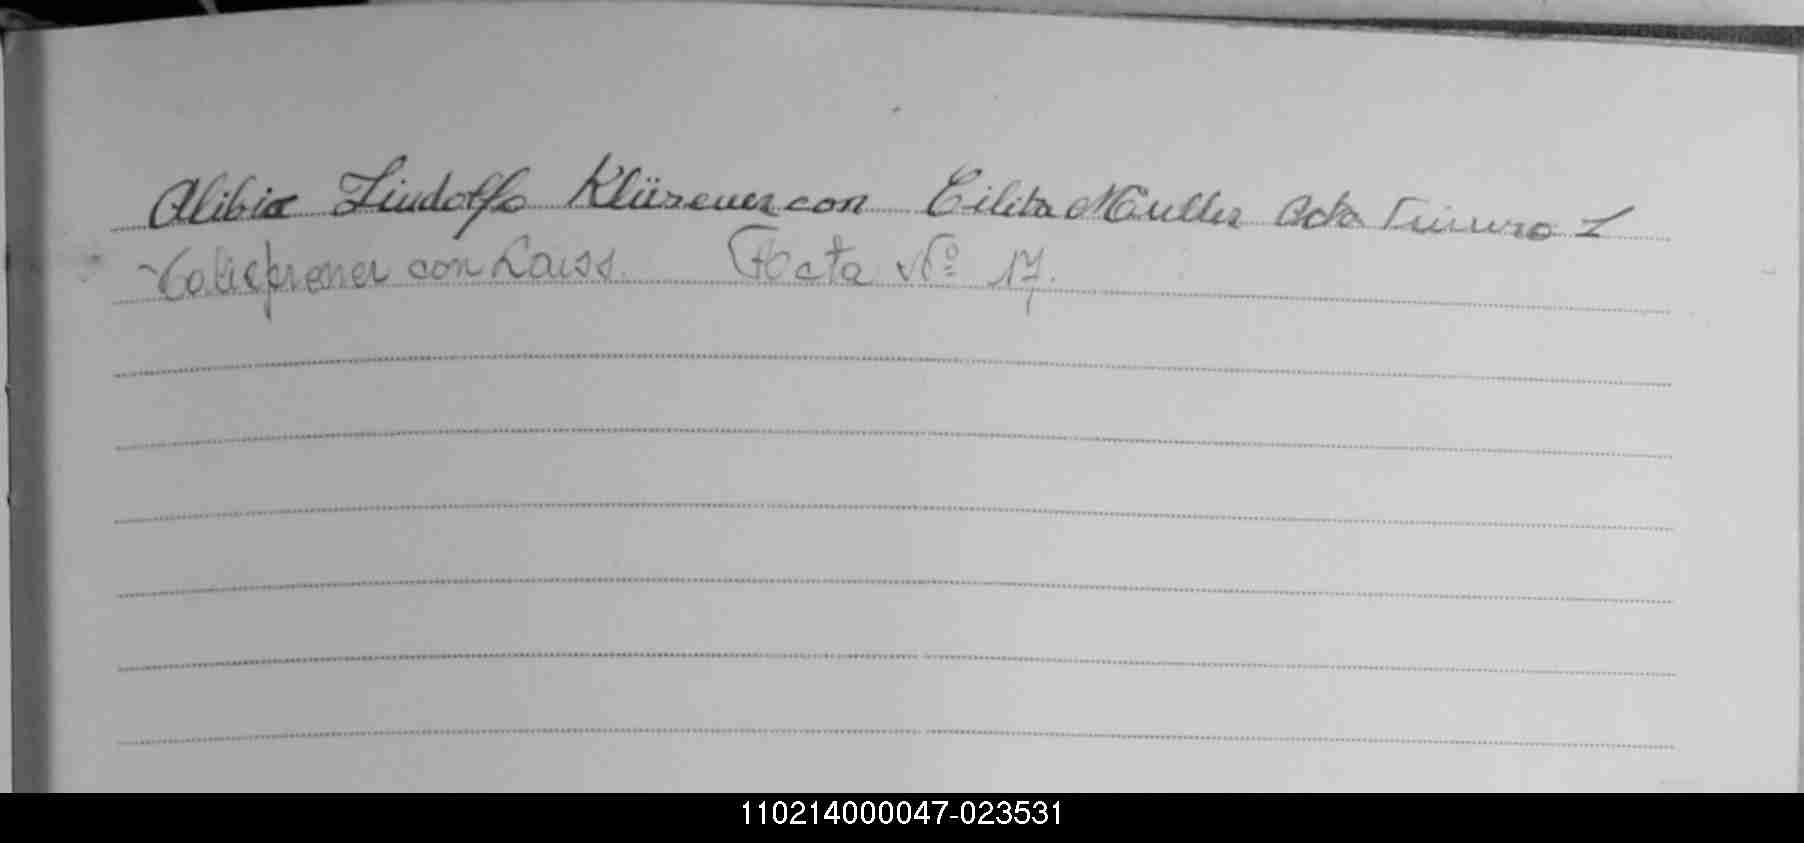 Alibio Lindolfo Klüsener con Cilita Muller Acta Número 1
con Lauss. Acta Nº 17.
110214000047-023531